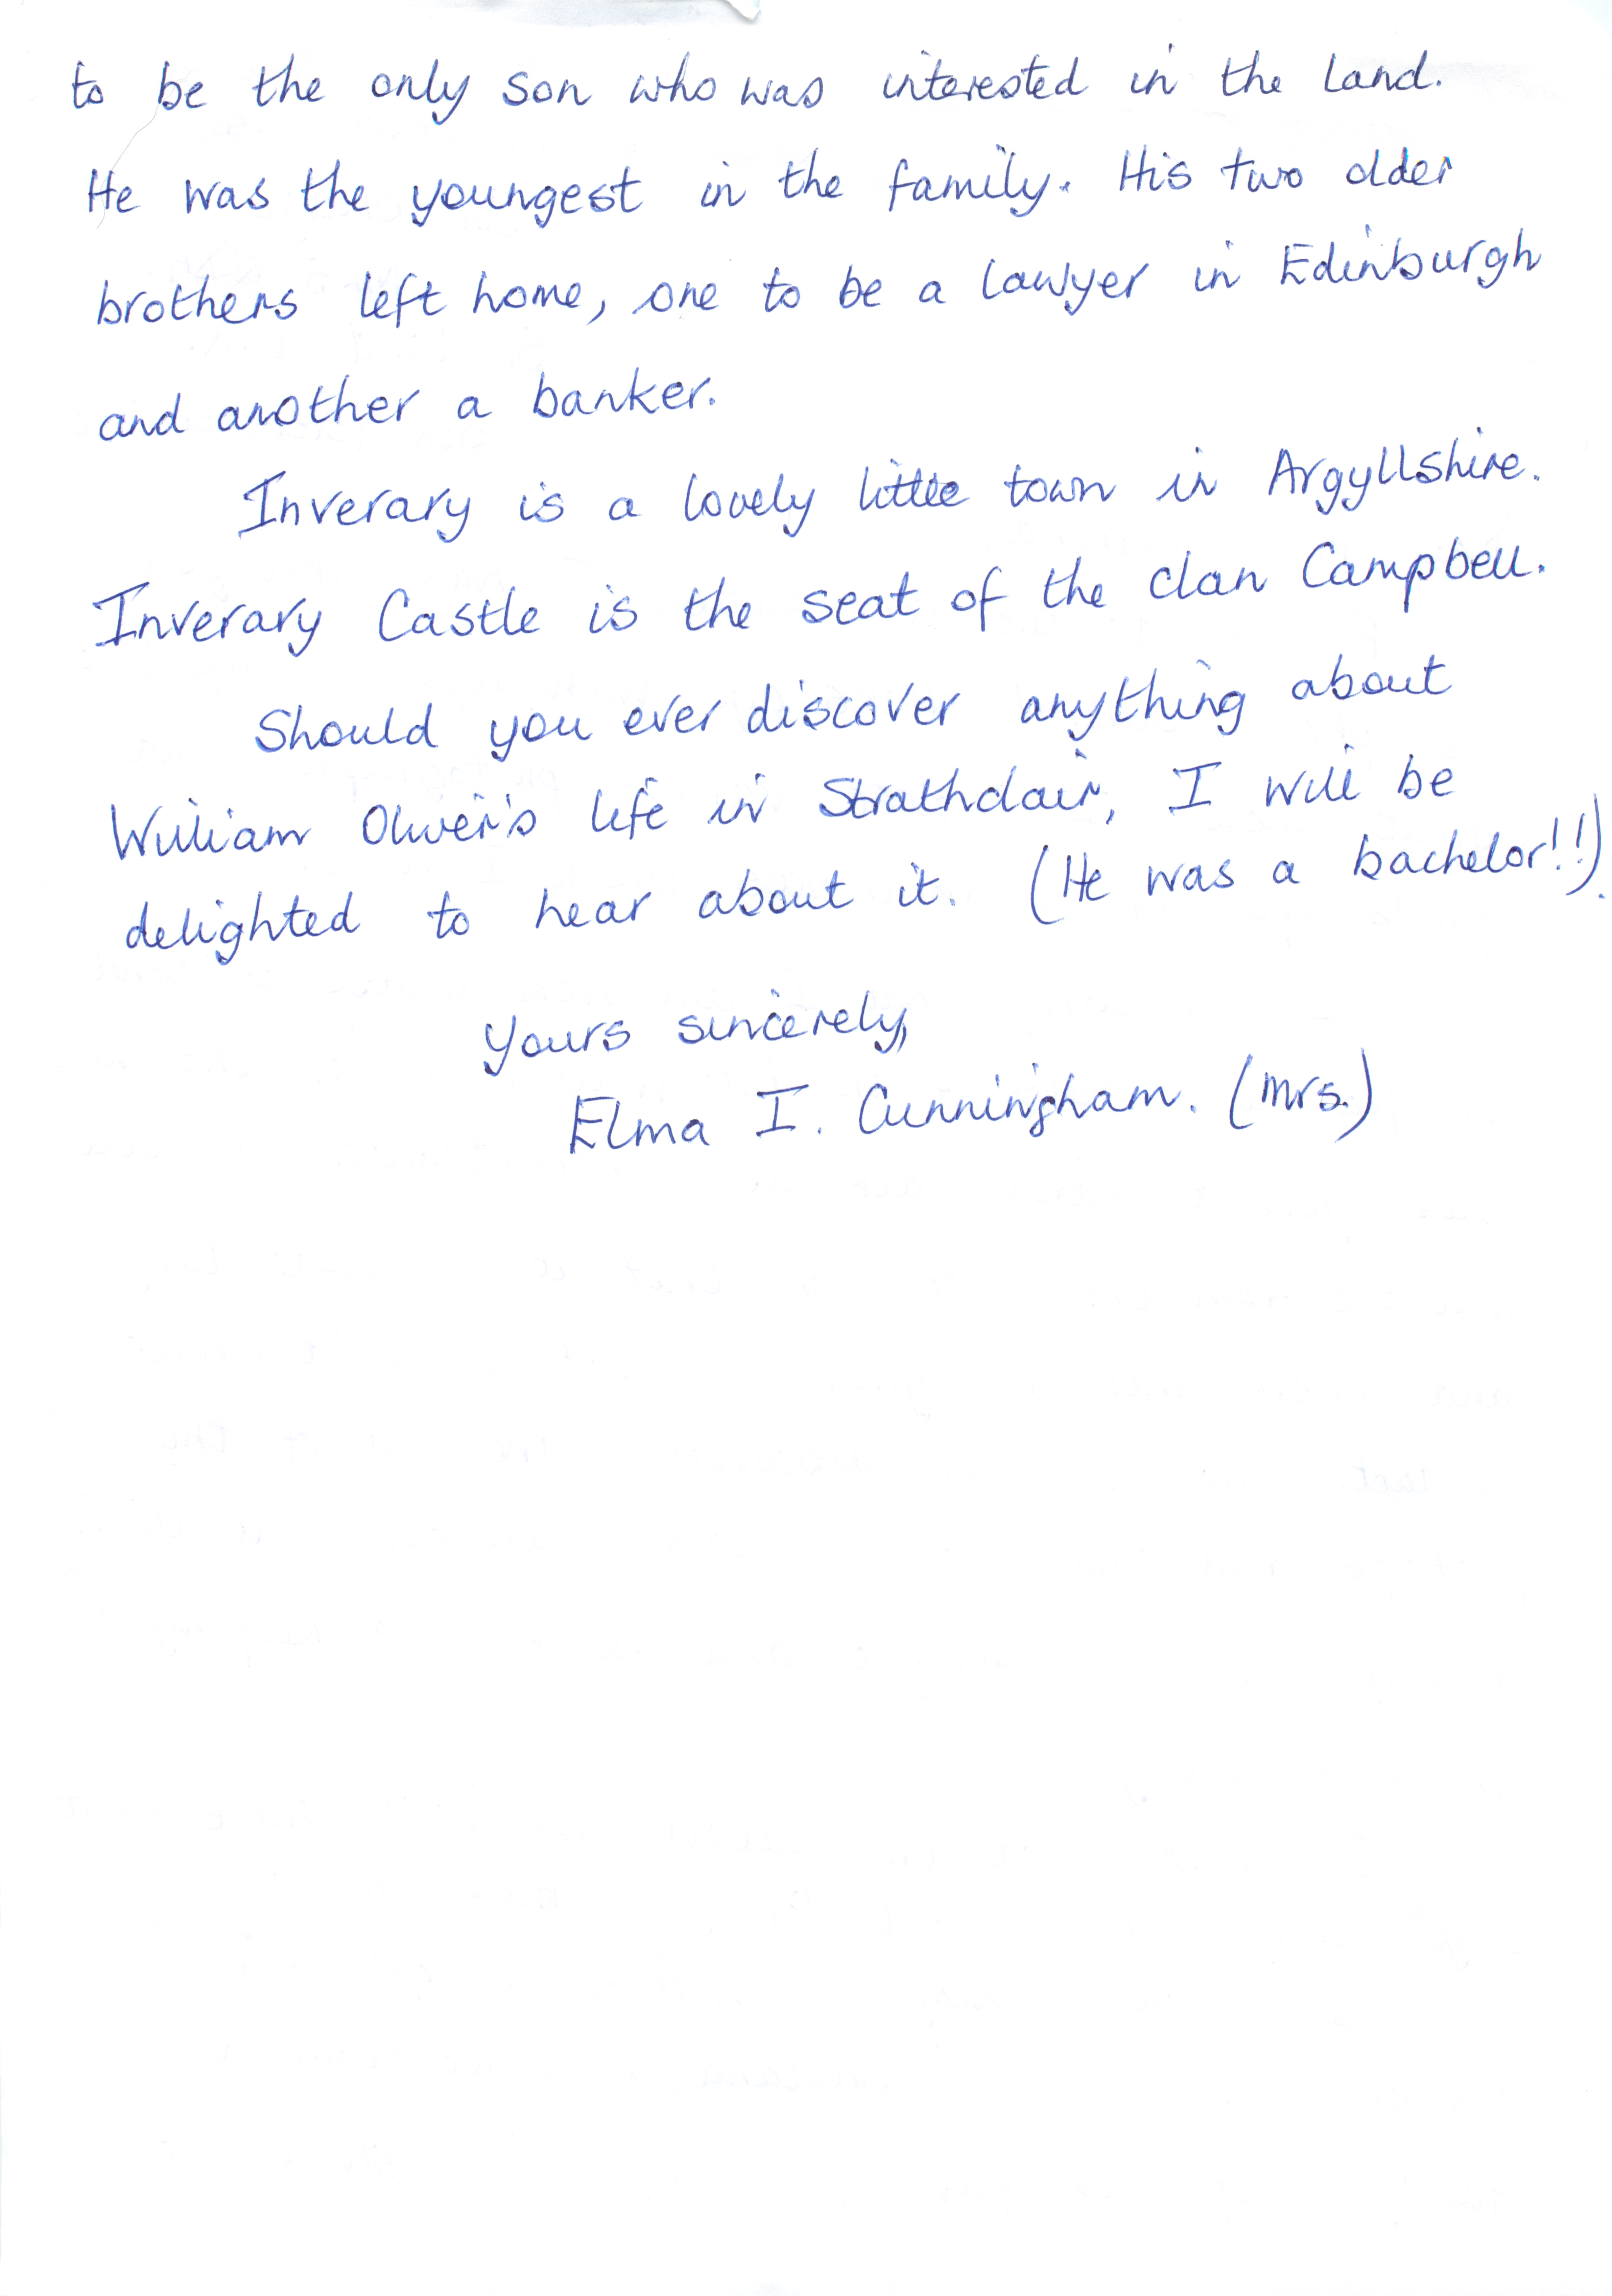 to be the only son who was interested in the land.
He was the youngest in the family. His two older
brothers left home, one to be a lawyer in Edinburgh
and another a banker.
Inverary is a lovely little town in Argyllshire.
Inverary Castle is the seat of the clan Campbell.
Should you ever discover anything about
William Oliver's life in Strathclair, I will be
delighted to hear about it. (He was a bachelor!!).
Yours sincerely,
Elma I. Cunningham. (Mrs.)